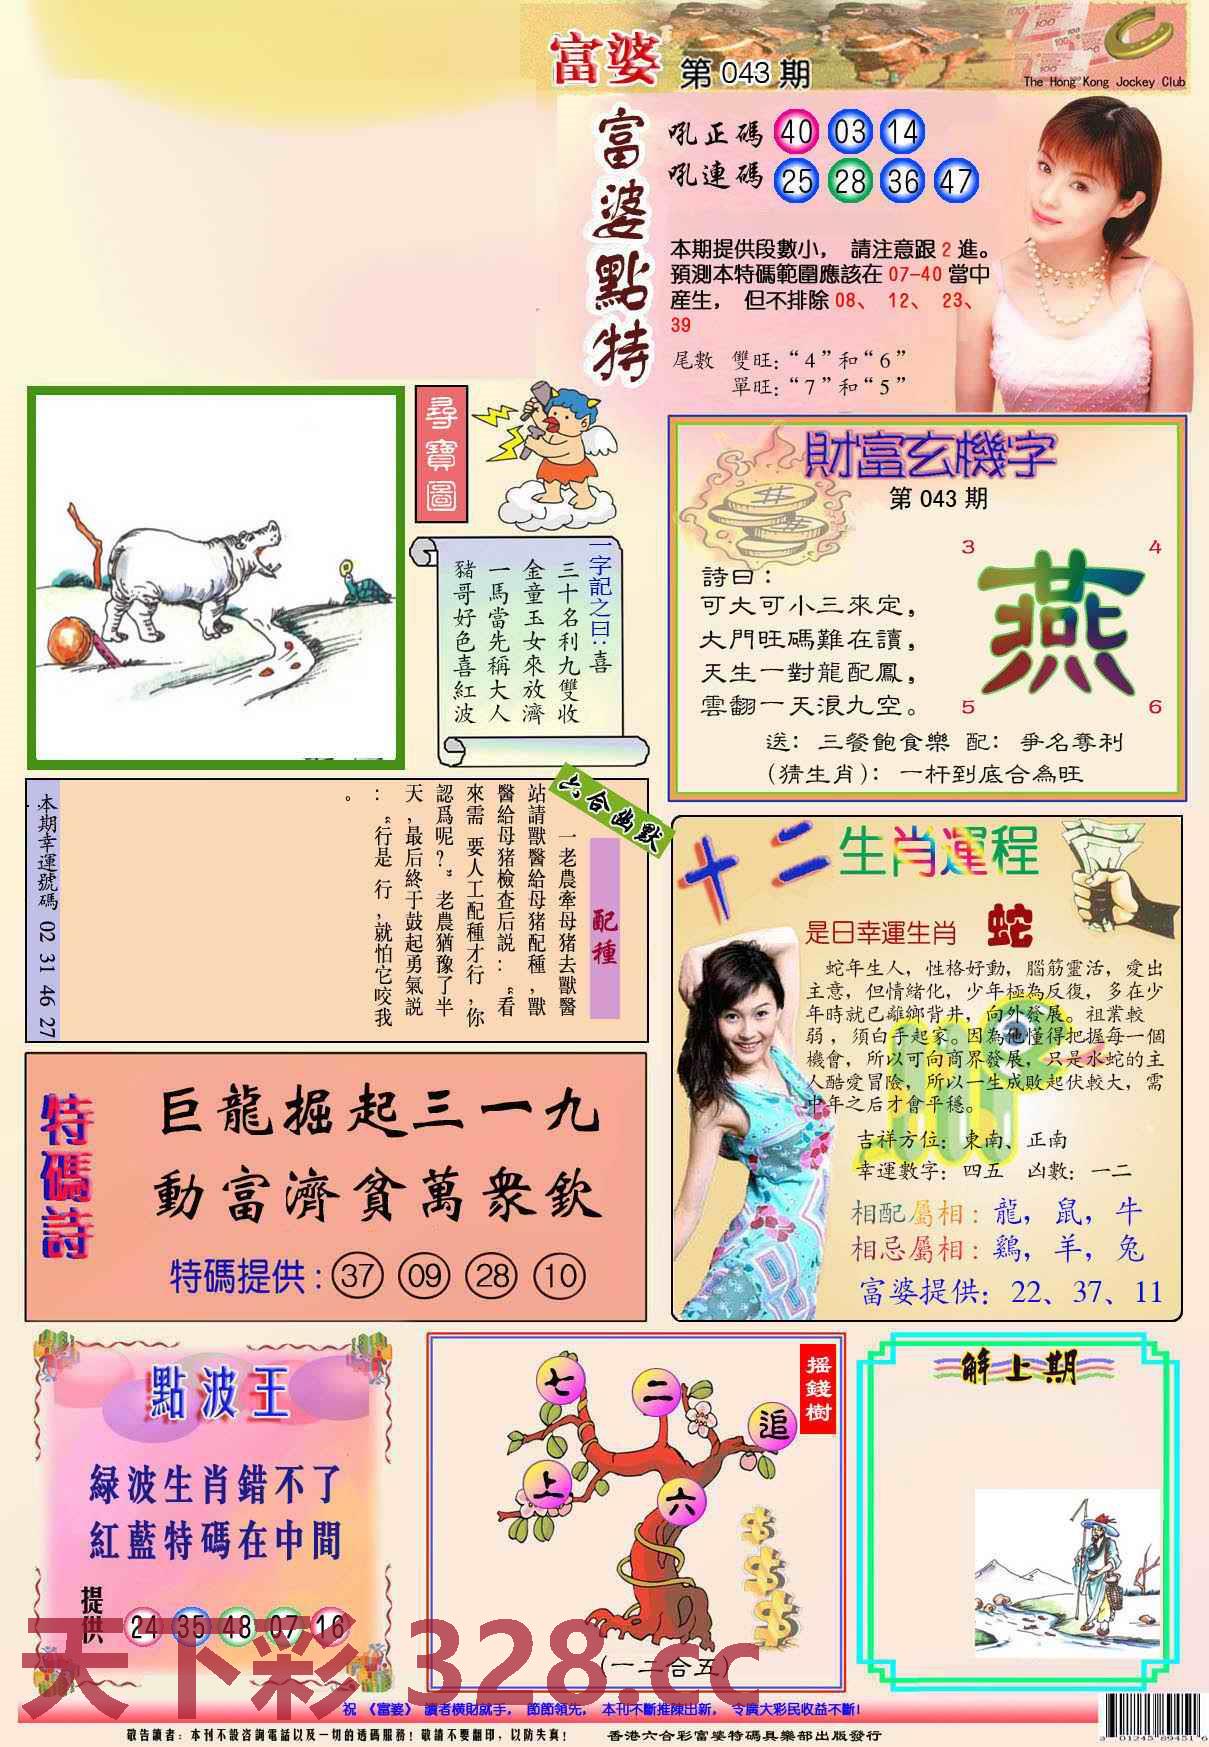 富婆 第 043 期
The Hong Kong Jockey Club
富婆點特
吼正碼 40 03 14
吼連碼 25 28 36 47
本期提供段數小， 請注意跟 2 進。
預測本特碼範圍應該在 07-40 當中
産生， 但不排除 08、 12、 23、
39
尾數 雙旺：“4”和“6”
單旺：“7”和“5”
尋寶圖
一字記之曰：喜
三十名利九雙收
金童玉女來放濟
一馬當先稱大人
豬哥好色喜紅波
財富玄機字
第 043 期
詩曰：
可大可小三來定，
大門旺碼難在讀，
天生一對龍配鳳，
雲翻一天浪九空。
3 4
燕
5 6
送：三餐飽食樂 配：爭名奪利
(猜生肖)：一杆到底合為旺
六合幽默
配種
一老農牽母豬去獸醫
站請獸醫給母豬配種,獸
醫給母豬檢查后説：“看
來需 要人工配種才行,你
認爲呢？”老農猶豫了半
天,最后終于鼓起勇氣説
：“行是 行 ,就怕它咬我
。
本期幸運號碼 02 31 46 27
十二生肖運程
是日幸運生肖 蛇
蛇年生人，性格好動，腦筋靈活，愛出
主意，但情緒化，少年極為反復，多在少
年時就已離鄉背井，向外發展。祖業較
弱，須白手起家。因為他懂得把握每一個
機會，所以可向商界發展，只是水蛇的主
人酷愛冒險，所以一生成敗起伏較大，需
中年之后才會平穩。
吉祥方位：東南、正南
幸運數字：四五 凶數：一二
相配屬相：龍，鼠，牛
相忌屬相：鷄，羊，兔
富婆提供：22、37、11
特碼詩
巨龍掘起三一九
動富濟貧萬衆欽
特碼提供：37 09 28 10
點波王
緑波生肖錯不了
紅藍特碼在中間
提供 24 35 48 07 16
搖錢樹
七 二 追
上 六
(一二合五)
解上期
天下彩 328.cc
祝 《富婆》 讀者横財就手， 節節領先， 本刊不斷推陳出新， 令廣大彩民收益不斷！
敬告讀者：本刊不設咨詢電話以及一切的透碼服務！敬請不要翻印，以防失真！ 香港六合彩富婆特碼具樂部出版發行
3 01245 89451 6